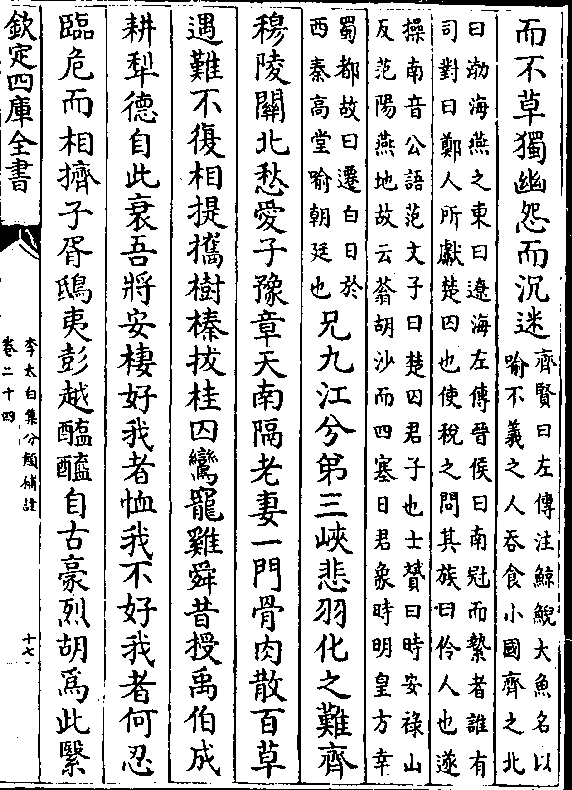 而不草獨幽怨而沉迷
齊賢曰左傳注鯨鯢大魚名以
喻不義之人吞食小國齊之北
曰渤海燕之東曰遼海左傳晉侯曰南冠而縶者誰有
司對曰鄭人所獻楚囚也使稅之問其族曰伶人也遂
操南音公語范文子曰楚囚君子也士贇曰時安祿山
反范陽燕地故云蓊胡沙而四塞日君象時明皇方幸
蜀都故曰遷白日於
西秦高堂喻朝廷也
兄九江兮弟三峽悲羽化之難齊
穆陵關北愁愛子豫章天南隔老妻一門骨肉散百草
遇難不復相提攜樹榛拔桂囚鸞寵雞舜昔授禹伯成
耕犂德自此衰吾將安棲好我者恤我不好我者何忍
臨危而相擠子胥鴟夷彭越醢醯自古豪烈胡為此繄
欽定四庫全書
李太白集分類補註
卷二十四
十七